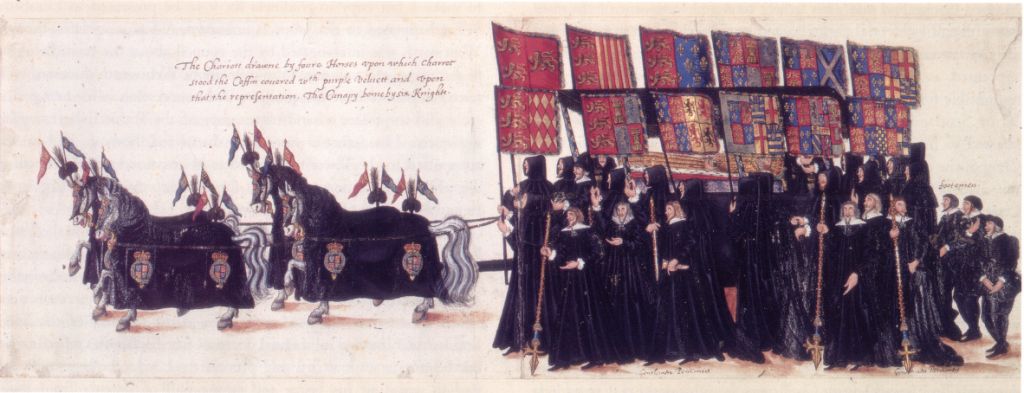 The Chariott drawne by foure Horses vpon which Charret
stood the Coffin couered wth purple Veluett and vpon
that the representation. The Canapy borne by six Knights.
footemen.
Gentlemen Pencioners
Pencioners